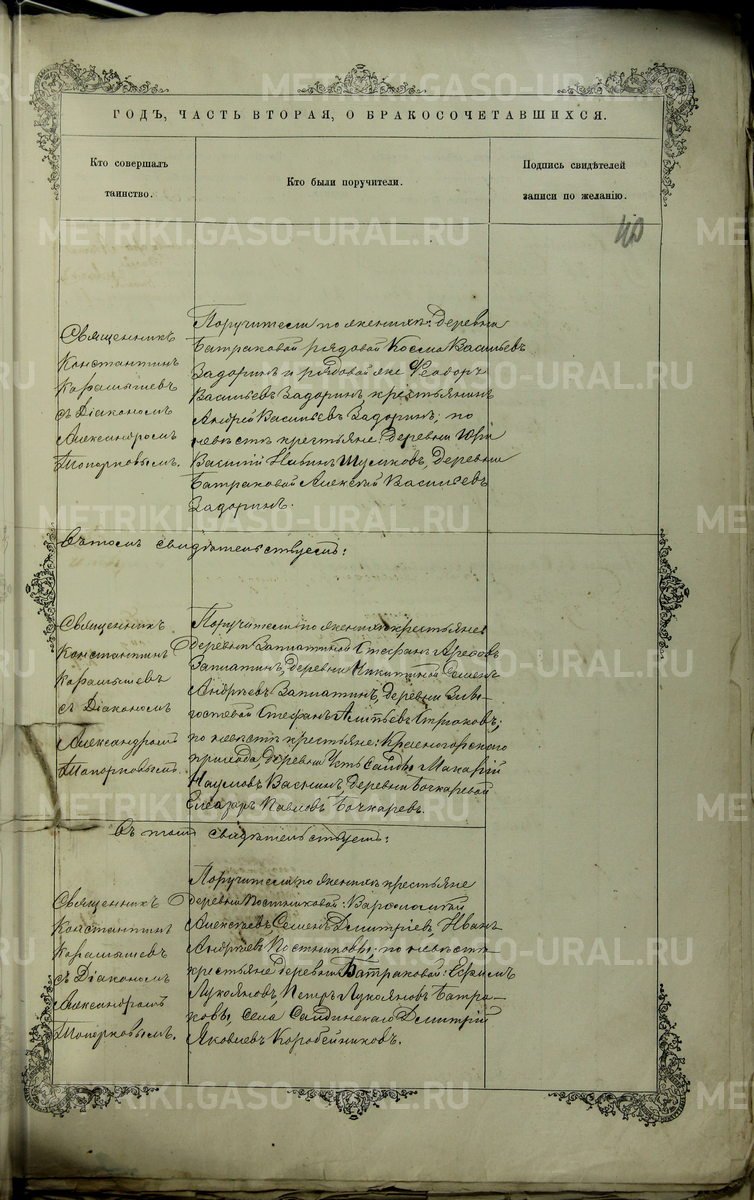 ГОДЪ, ЧАСТЬ ВТОРАЯ, О БРАКОСОЧЕТАВШИХСЯ.
Кто совершалъ
таинство.
Кто были поручители.
Подпись свидѣтелей
записи по желанію.
40
Священникъ
Константинъ
Карамышевъ
съ Діакономъ
Александромъ
Топорковымъ.
Поручители по женихѣ: деревни
Батраковой рядовой Косма Васильевъ
Задоринъ и рядовой же Ѳеодоръ
Васильевъ Задоринъ, крестьянинъ
Андрей Васильевъ Задоринъ; по
невѣстѣ крестьяне: деревни
Василій Шумковъ, деревни
Батраковой Алексѣй Васильевъ
Задоринъ.
Въ томъ свидѣтельствуетъ:
Священникъ
Константинъ
Карамышевъ
съ Діакономъ
Александромъ
Топорковымъ.
Поручители по женихѣ крестьяне:
деревни Заплатиной Стефанъ
Заплатинъ, деревни Никитиной Семенъ
Андреевъ Заплатинъ, деревни
Стефанъ
по невѣстѣ крестьяне: Красногорскаго
прихода, деревни Усть Салды Макарій
Наумовъ деревни Бочкаревой
Елеазаръ Павловъ Бочкаревъ.
Въ томъ свидѣтельствуетъ:
Священникъ
Константинъ
Карамышевъ
съ Діакономъ
Александромъ
Топорковымъ.
Поручители по женихѣ крестьяне
деревни Постниковой: Варѳоломей
Алексѣевъ, Семенъ Дмитріевъ, Иванъ
Андреевъ Постниковы; по невѣстѣ
крестьяне деревни Батраковой: Ефимъ
Лукояновъ, Петръ Лукояновъ Батра-
ковы, села Салдинскаго Дмитрій
Яковлевъ Коробейниковъ.
METRIKI.GASO-URAL.RU